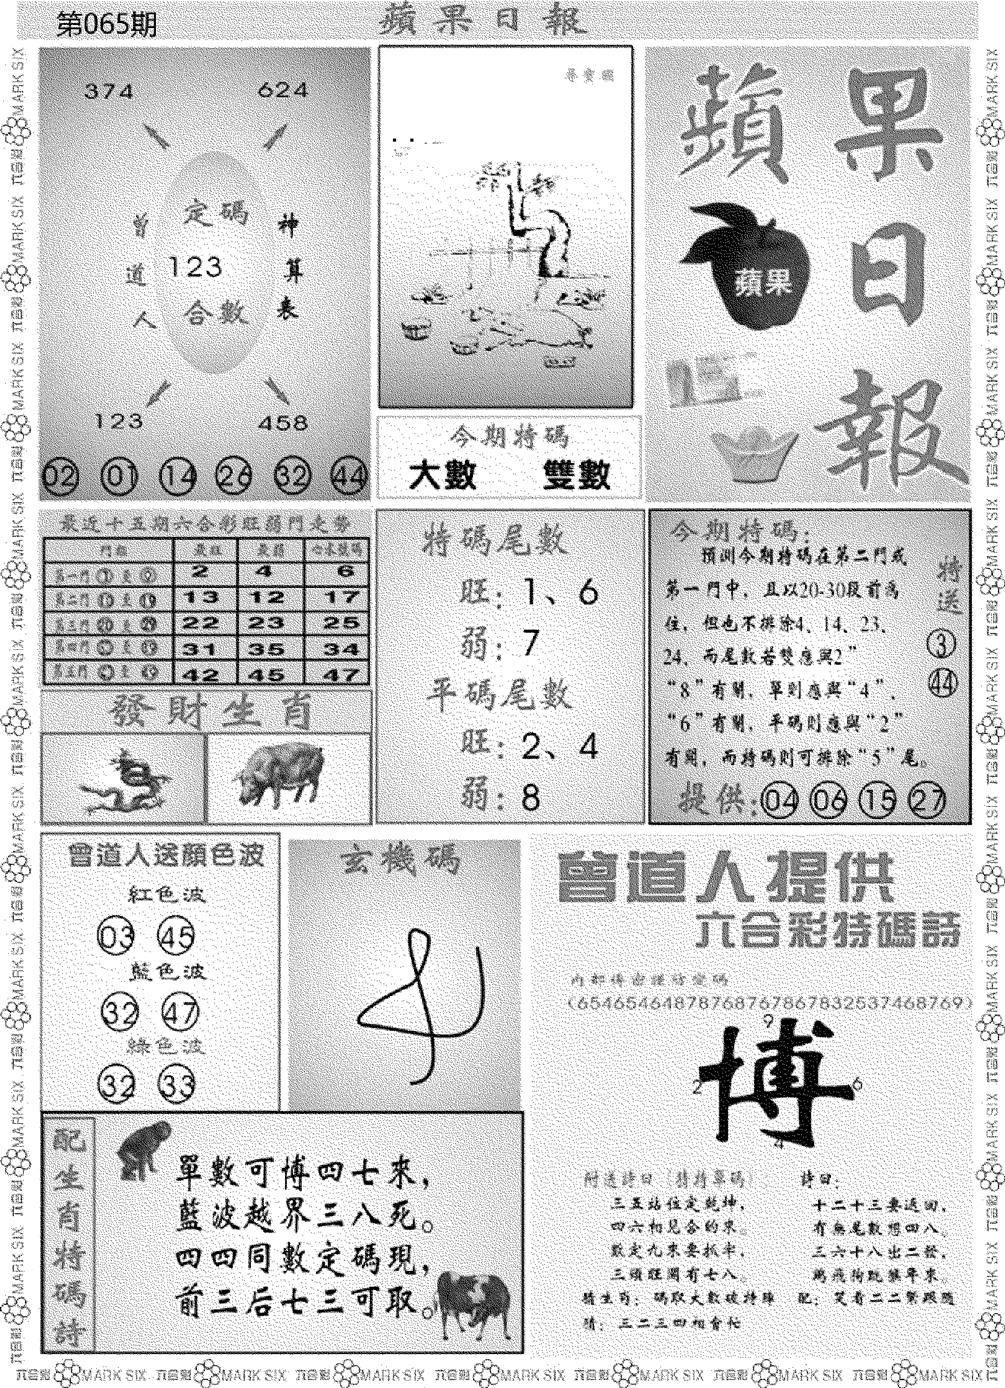 第065期
蘋果日報
374
624
定碼
123
合數
曾道人
神算表
123
458
02 01 14 26 32 44
尋寶圖
今期特碼
大數 雙數
蘋果日報
蘋果
最近十五期六合彩旺弱門走勢
門類 最旺 最弱 心水號碼
第一門 ① 至 ⑨ 2 4 6
第二門 至 ⑲ 13 12 17
第三門 ⑳ 至 ㉙ 22 23 25
第四門 至 31 35 34
第五門 至 42 45 47
發財生肖
特碼尾數
旺:1、6
弱:7
平碼尾數
旺:2、4
弱:8
今期特碼:
預測今期特碼在第二門或
第一門中，且以20-30段前為
住，但也不排除4、14、23、
24、而尾數若雙應與2”
“8”有關，單則應與“4”、
“6”有關，平碼則應與“2”
有關，而特碼則可排除“5”尾。
特送
3
44
提供:04 06 15 27
曾道人送顏色波
紅色波
03 45
藍色波
32 47
綠色波
32 33
玄機碼
曾道人提供
六合彩特碼詩
內部傳密謹防定碼
(65465464878768767867832537468769)
9
2 博 6
4
附送詩曰(猜特單碼)
三五站位定乾坤，
四六相見合約來。
數定九來要抓牢，
三頭旺開有七八。
猜生肖：碼取大數破特陣
猜：三二三四相會忙
詩曰：
十二十三要返回，
有無尾數想四八。
三六十八出二發，
鳥飛狗跳猴年來。
配：笑看二二緊跟隨
配生肖特碼詩
單數可博四七來，
藍波越界三八死。
四四同數定碼現，
前三后七三可取。
六合彩 MARK SIX